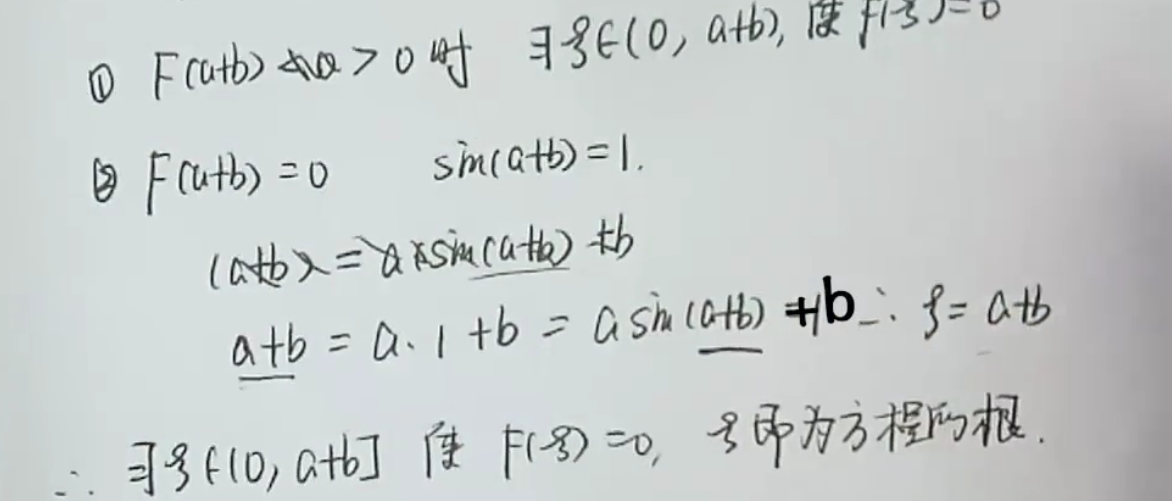 ① F(a+b) > 0 时 ∃ξ∈(0, a+b), 使 F(ξ)=0
② F(a+b) = 0 sin(a+b) = 1.
(a+b) = a sin(a+b) + b
a+b = a·1 + b = a sin(a+b) + b ∴ ξ = a+b
∴ ∃ξ∈(0, a+b] 使 F(ξ)=0, ξ即为方程的根.